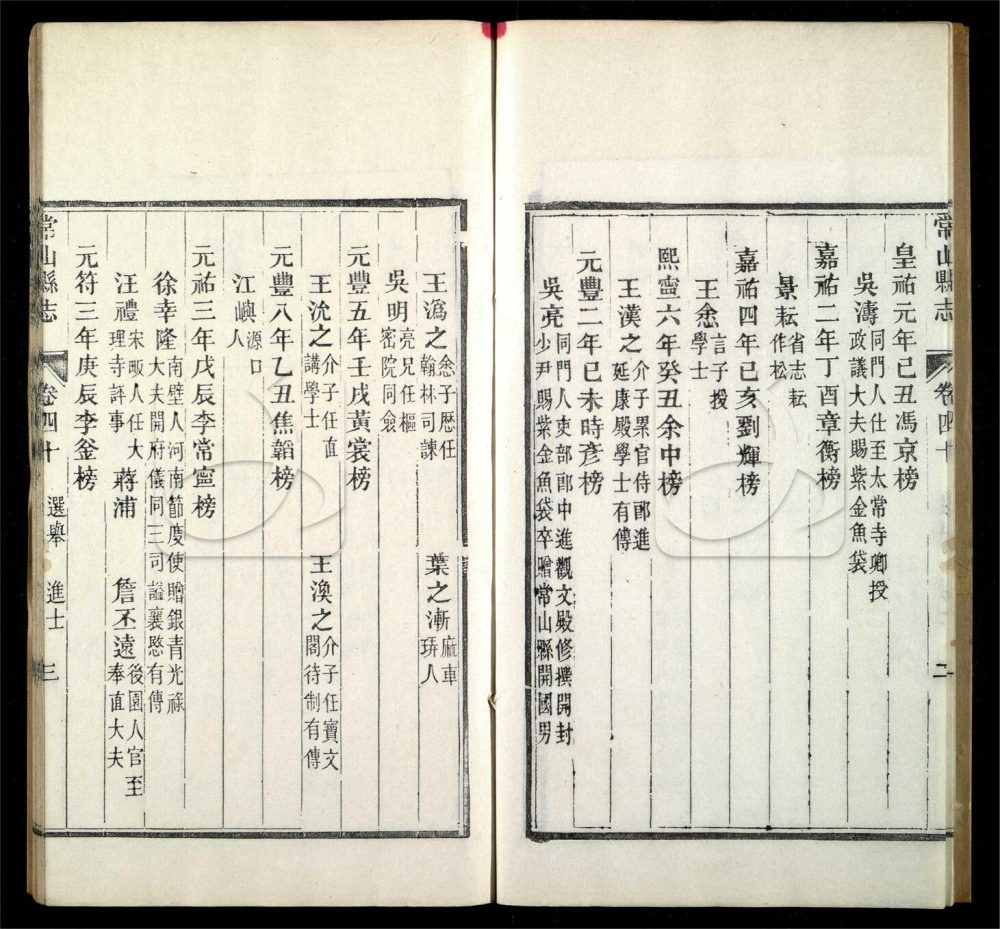 常山縣志 卷四十 二
皇祐元年己丑馮京榜
吳濤 同門人仕至太常寺卿授政議大夫賜紫金魚袋
嘉祐二年丁酉章衡榜
景耘 省志耘作松
嘉祐四年己亥劉輝榜
王悆 言子授學士
熙寧六年癸丑余中榜
王漢之 介子累官侍郎進延康殿學士有傳
元豐二年已未時彥榜
吳亮 同門人吏部郎中進觀文殿修撰開封少尹賜紫金魚袋卒贈常山縣開國男
王潙之 悆子歷任翰林司諫 葉之漸 麻車琾人
吳明 亮兄任樞密院同僉
元豐五年壬戌黃裳榜
王沇之 介子任直講學士 王渙之 介子任寶文閣待制有傳
元豐八年乙丑焦韜榜
江嶼 源口人
元祐三年戊辰李常寧榜
徐幸隆 南壁人河南節慶使贈銀青光祿大夫開府儀同三司謚襄愍有傳
汪禮 宋畈人任大理寺評事 蔣浦 詹丕遠 後園人官至奉直大夫
元符三年庚辰李釜榜
常山縣志 卷四十 選舉 進士 三